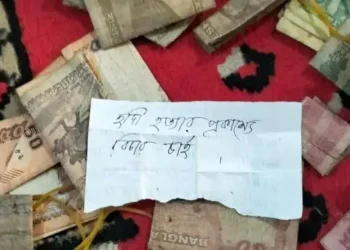 হাদী হত্যার প্রকাশ্যে
বিচার চাই
।
50
BANGLA